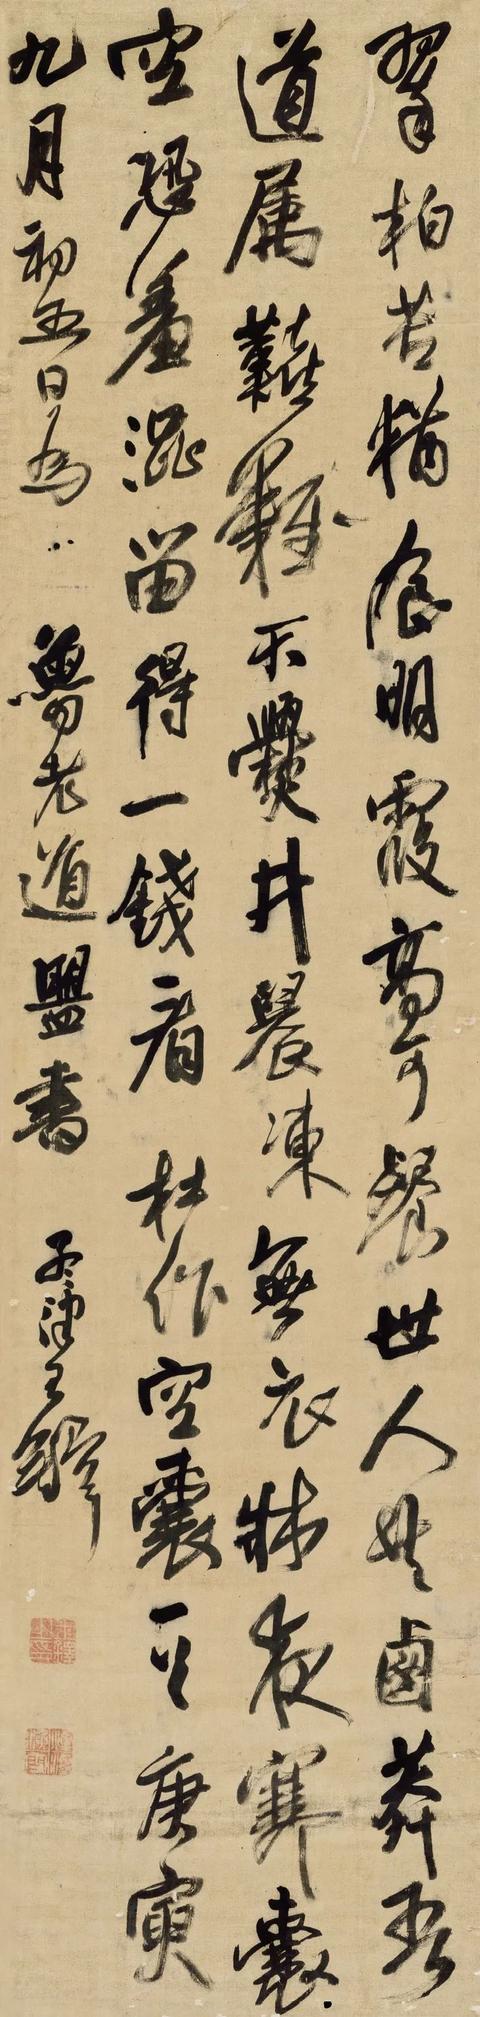 翠柏苦猶食明霞高可餐世人共鹵莽吾
道属囏難不爨井晨凍無衣牀夜寒囊
空恐羞澀留得一錢看 杜作空囊 庚寅
九月初五日為 魯老道盟書 孟津王鐸